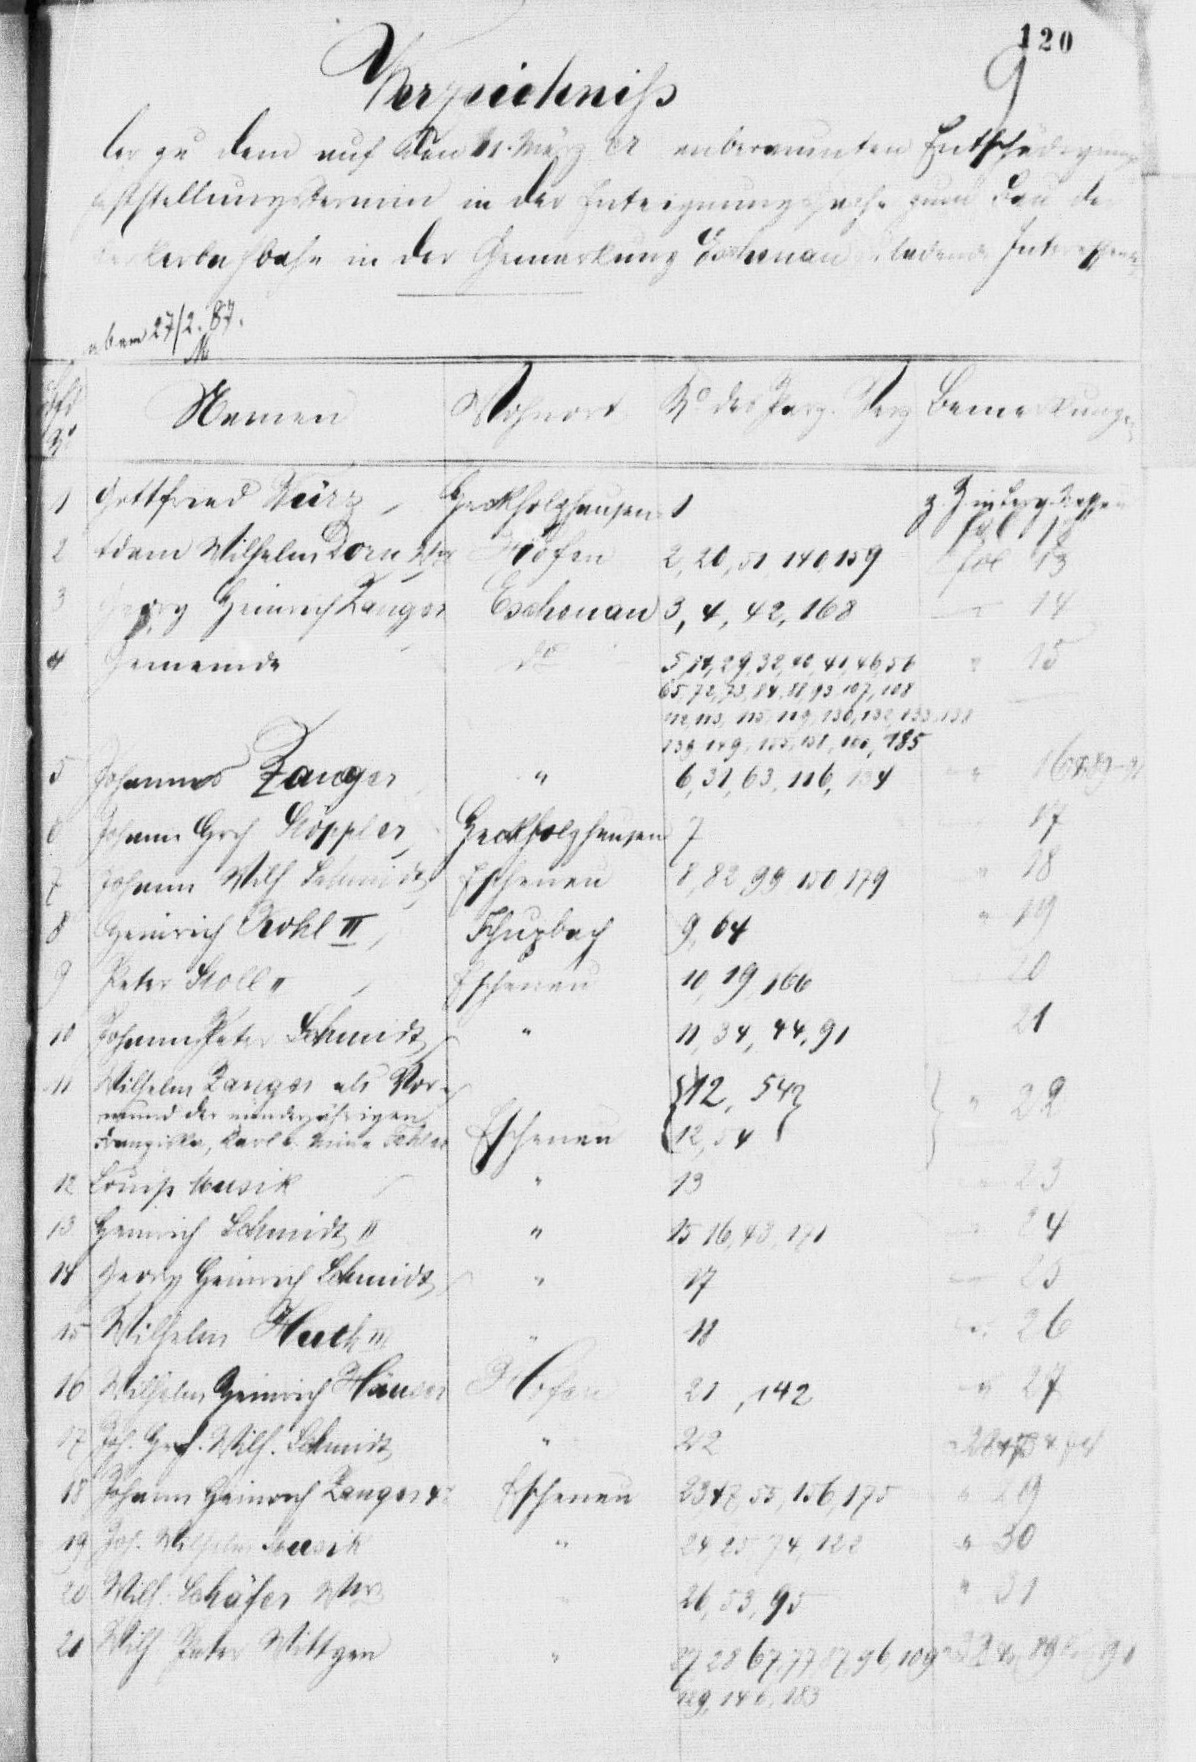 120
9
Verzeichniß
der zu dem auf den 11. März cr anberaumten Entschädigungs
feststellungstermin in der Enteignungssache zum Bau der
Kerkerbachbahn in der Gemarkung Eschenau ladende Interessenten
27/2. 87.
Lfd No Namen Wohnort No des Parz. Verz Bemerkungen
1 Gottfried Würz Heckholzhausen 1
2 Adam Wilhelm Dorn Wwe Hofen 2, 20, 51, 140, 159 fol 13
3 Georg Heinrich Zanger Eschenau 3, 4, 42, 168 " 14
4 Gemeinde do 5, 14, 29, 32, 40, 41, 46, 56 " 15
65, 72, 73, 84, 88, 93, 107, 108
112, 113, 115, 119, 130, 132, 133, 138
139, 149, 155, 151, 160, 185
5 Johannes Zanger " 6, 31, 63, 116, 134 " 16
6 Johann Grg Stöppler Heckholzhausen 7 17
7 Johann Wilh Schmidt Eschenau 8, 82, 99, 150, 179 " 18
8 Heinrich Kohl III Schupbach 9, 64 " 19
9 Peter Stoll II Eschenau 10, 19, 166 20
10 Johann Peter Schmidt " 11, 34, 44, 91 21
11 Wilhelm Zanger als Vor- {12, 54} " 22
mund der minderjährigen
Franziska, Karl u. Mina Eschenau {12, 54}
12 Louise Musik " 13 23
13 Heinrich Schmidt II " 15, 16, 43, 171 24
14 Georg Heinrich Schmidt " 17 25
15 Wilhelm Huth III " 18 26
16 Wilhelm Heinrich Häuser Hofen 21, 142 " 27
17 Joh. Grg. Wilh. Schmidt " 22 " 28
18 Johann Heinrich Zanger Eschenau 23, 47, 55, 156, 175 " 29
19 Joh. Wilhelm Musik " 24, 25, 74, 122 " 30
20 Wilh. Schäfer Wwe " 26, 53, 95 " 31
21 Wilh Peter Wittgen " 27, 28, 67, 77, 87, 96, 109
129, 146, 183